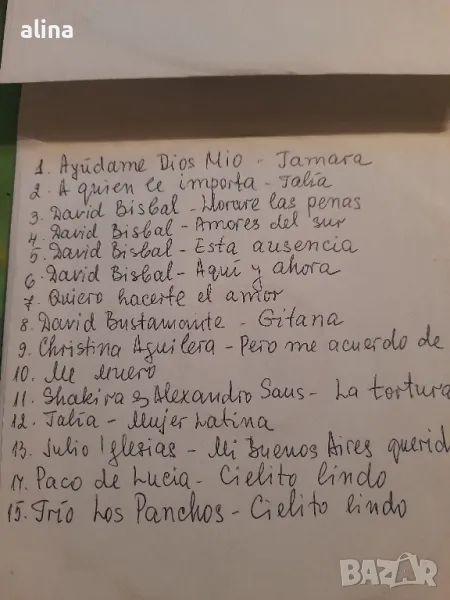 alina
1. Ayúdame Dios Mio - Tamara
2. A quien le importa - Talía
3. David Bisbal - Llorare las penas
4. David Bisbal - Amores del sur
5. David Bisbal - Esta ausencia
6. David Bisbal - Aquí y ahora
7. Quiero hacerte el amor
8. David Bustamonte - Gitana
9. Christina Aguilera - Pero me acuerdo de
10. Me muero
11. Shakira & Alexandro Sans - La tortura
12. Talía - Mujer Latina
13. Julio Iglesias - Mi Buenos Aires querid
14. Paco de Lucia - Cielito lindo
15. Trío Los Panchos - Cielito lindo
BAZAR